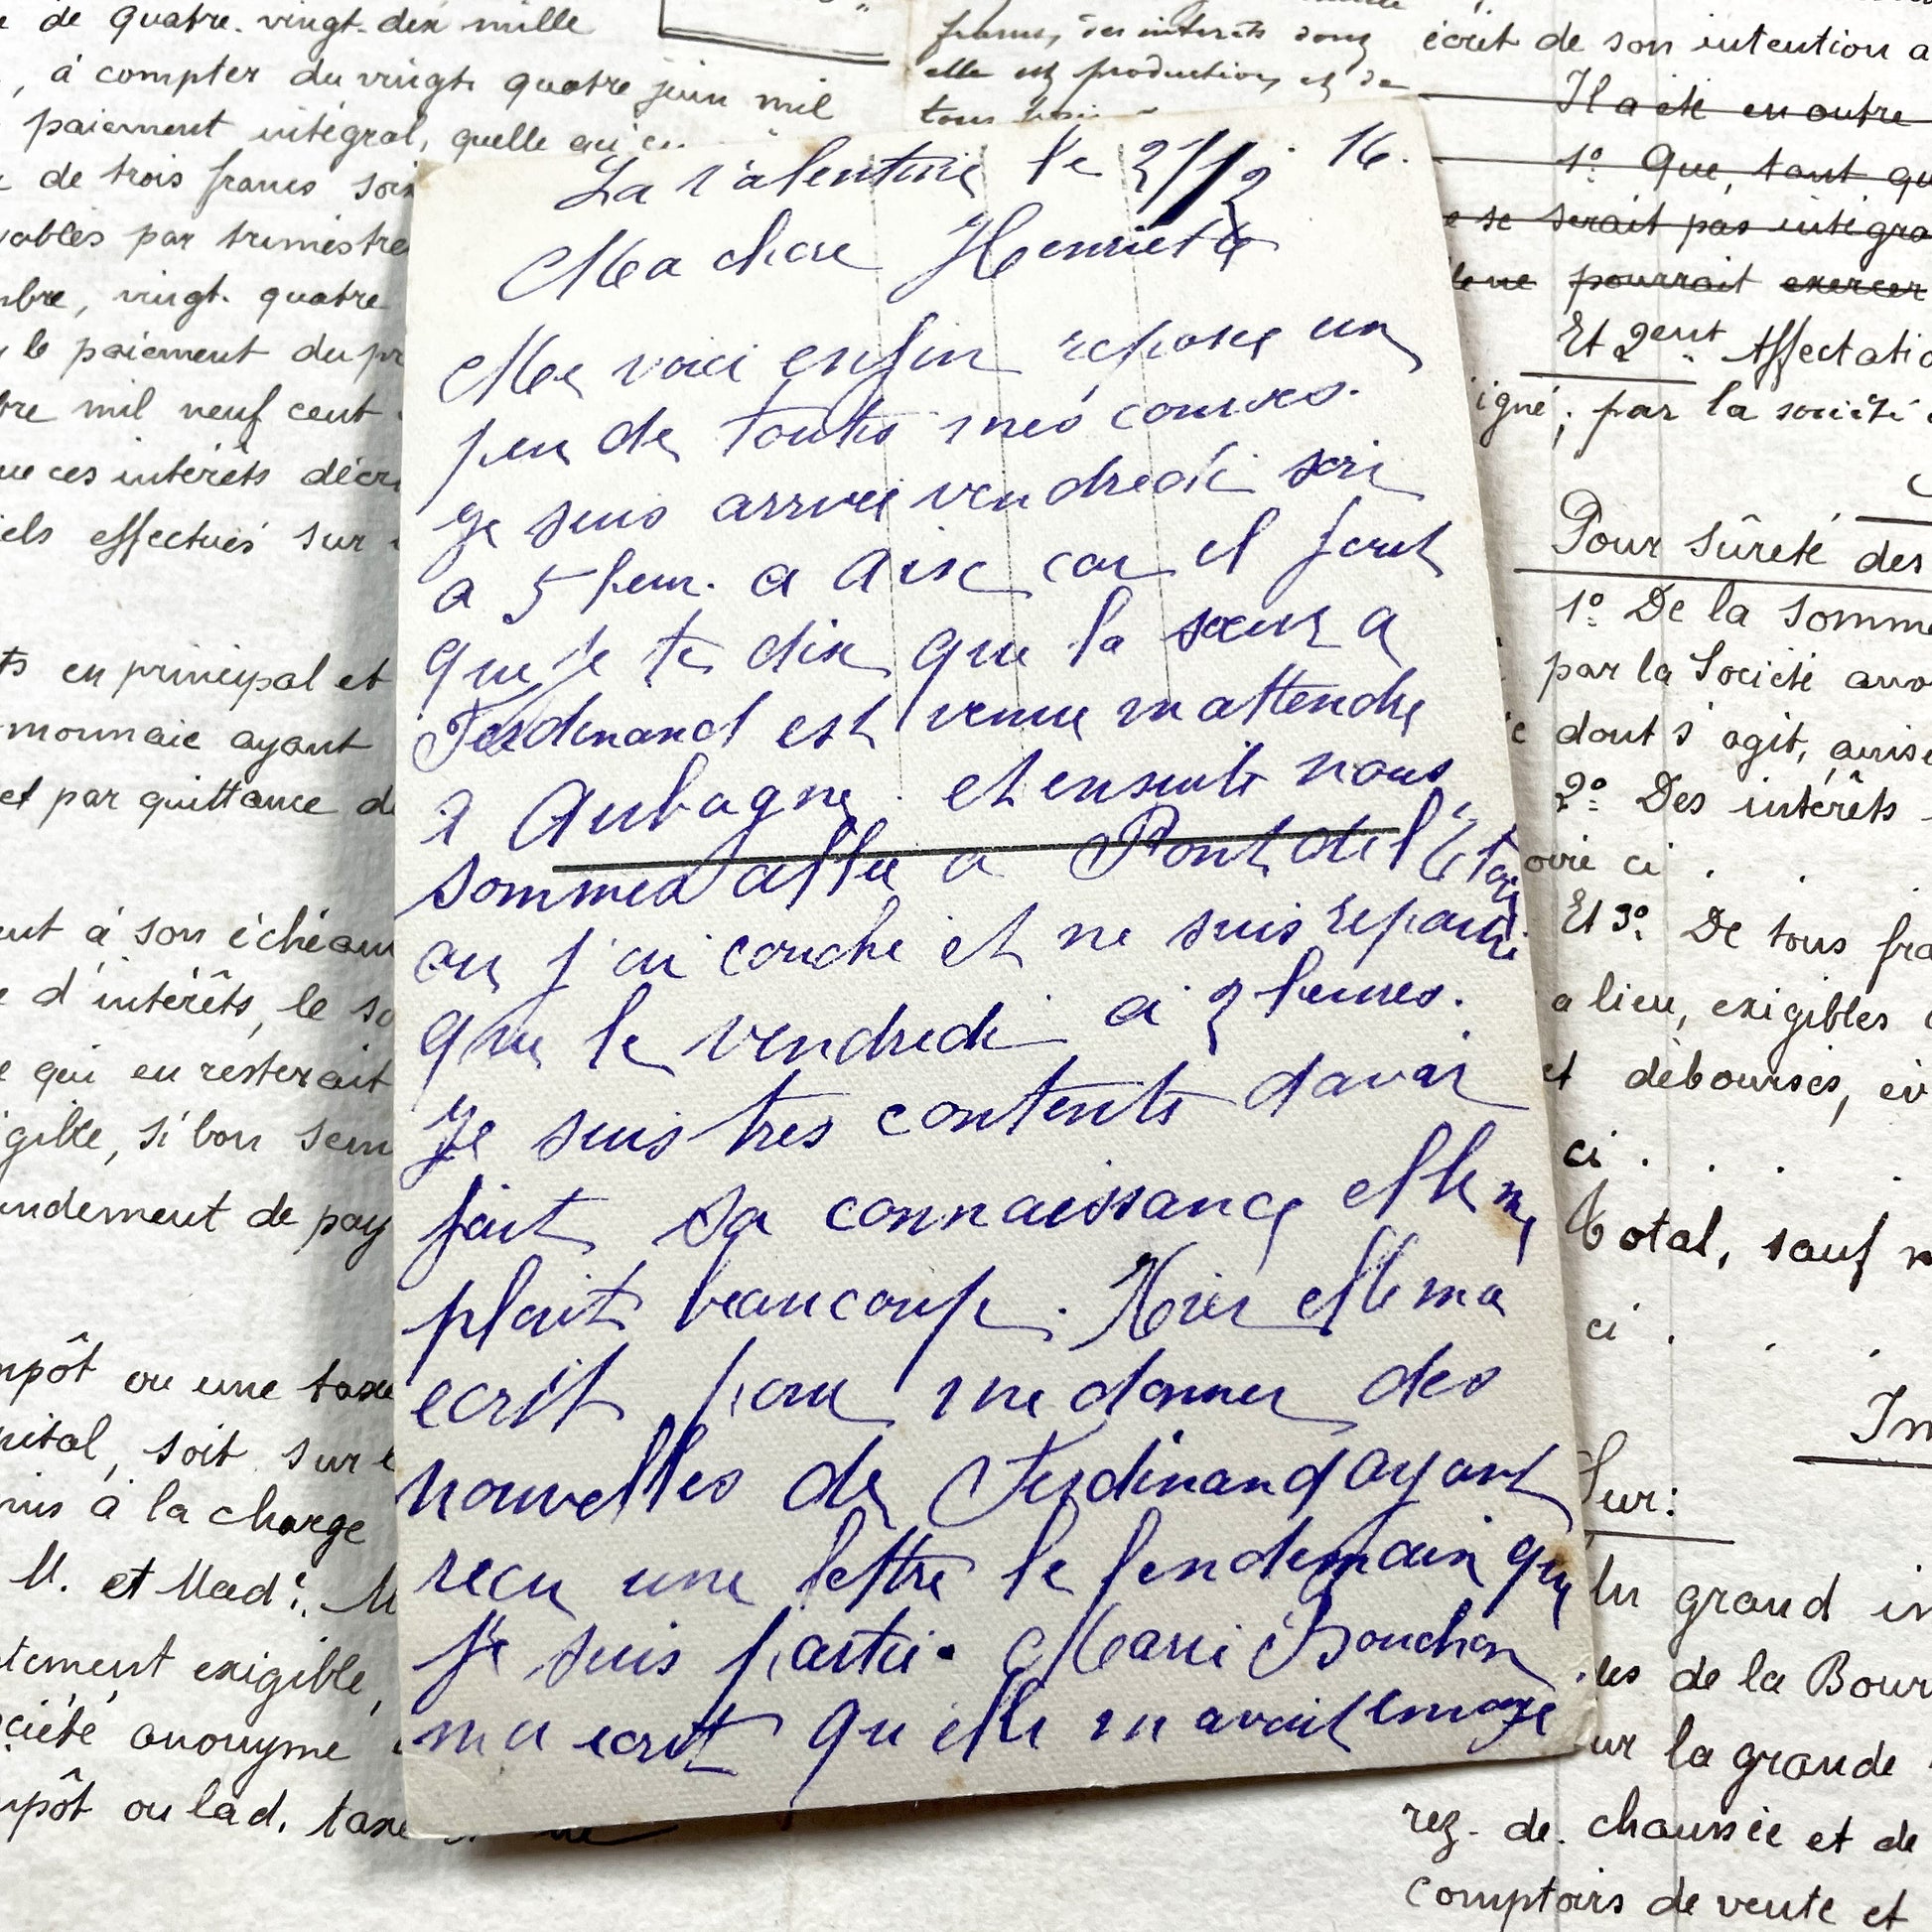 e de quatre-vingt-dix mille
, à compter du vingt quatre juin mil
paiement intégral, quelle
de trois francs soix
vables par trimestre
mbre, vingt-quatre
le paiement du pr
bre mil neuf cent
ue ces intérêts décr
iels effectués sur
ts en principal et
monnaie ayant
et par quittance de
ent à son échéan
e d'intérêts, le so
e qui en resterait
gible, si bon sem
andement de pay
mpôt ou une taxe
pital, soit sur
mis à la charge
M. et Mad
tement exigible,
ciété anonyme
mpôt ou lad. taxe
francs, ses intérêts sont
elle est production, et de
tous
La Valentine le 21/2 16.
Ma chere Henriette
Me voici enfin reposée un
peu de toutes mes courses.
Je suis arrivée vendredi soir
a 5 heur. a Aix car il faut
que je te dise que la sœur a
Ferdinand est venue m attendre
a Aubagne. et ensuite nous
sommes allée a Pont de l'Etoi
ou j'ai couché et ne suis repartie
que le vendredi à 2 heures.
Je suis tres contente davoir
fait sa connaissance elle me
plait beaucoup. Hier elle ma
ecrit pour me donner des
nouvelles de Ferdinand ayant
recu une lettre le lendemain que
je suis partie. Marie Bouchon
ma ecrit qu elle m avait envoye
écrit de son intention a
Il a été en outre
1º Que, tant qu
e se serait pas intégra
lle ne pourrait exercer
Et 2ent Affectatio
igné; par la société
Pour sûreté des
1º De la somme
par la Société ano
e dont s'agit,
2º Des intérêts
oire ci .
Et 3º De tous fra
a lieu, exigibles
et débourses, év
ci . . . .
Total, sauf m
ci . . .
Im
Sur:
Un grand im
les de la Bour
sur la grande
rez-de-chaussée et de
comptoirs de vente et